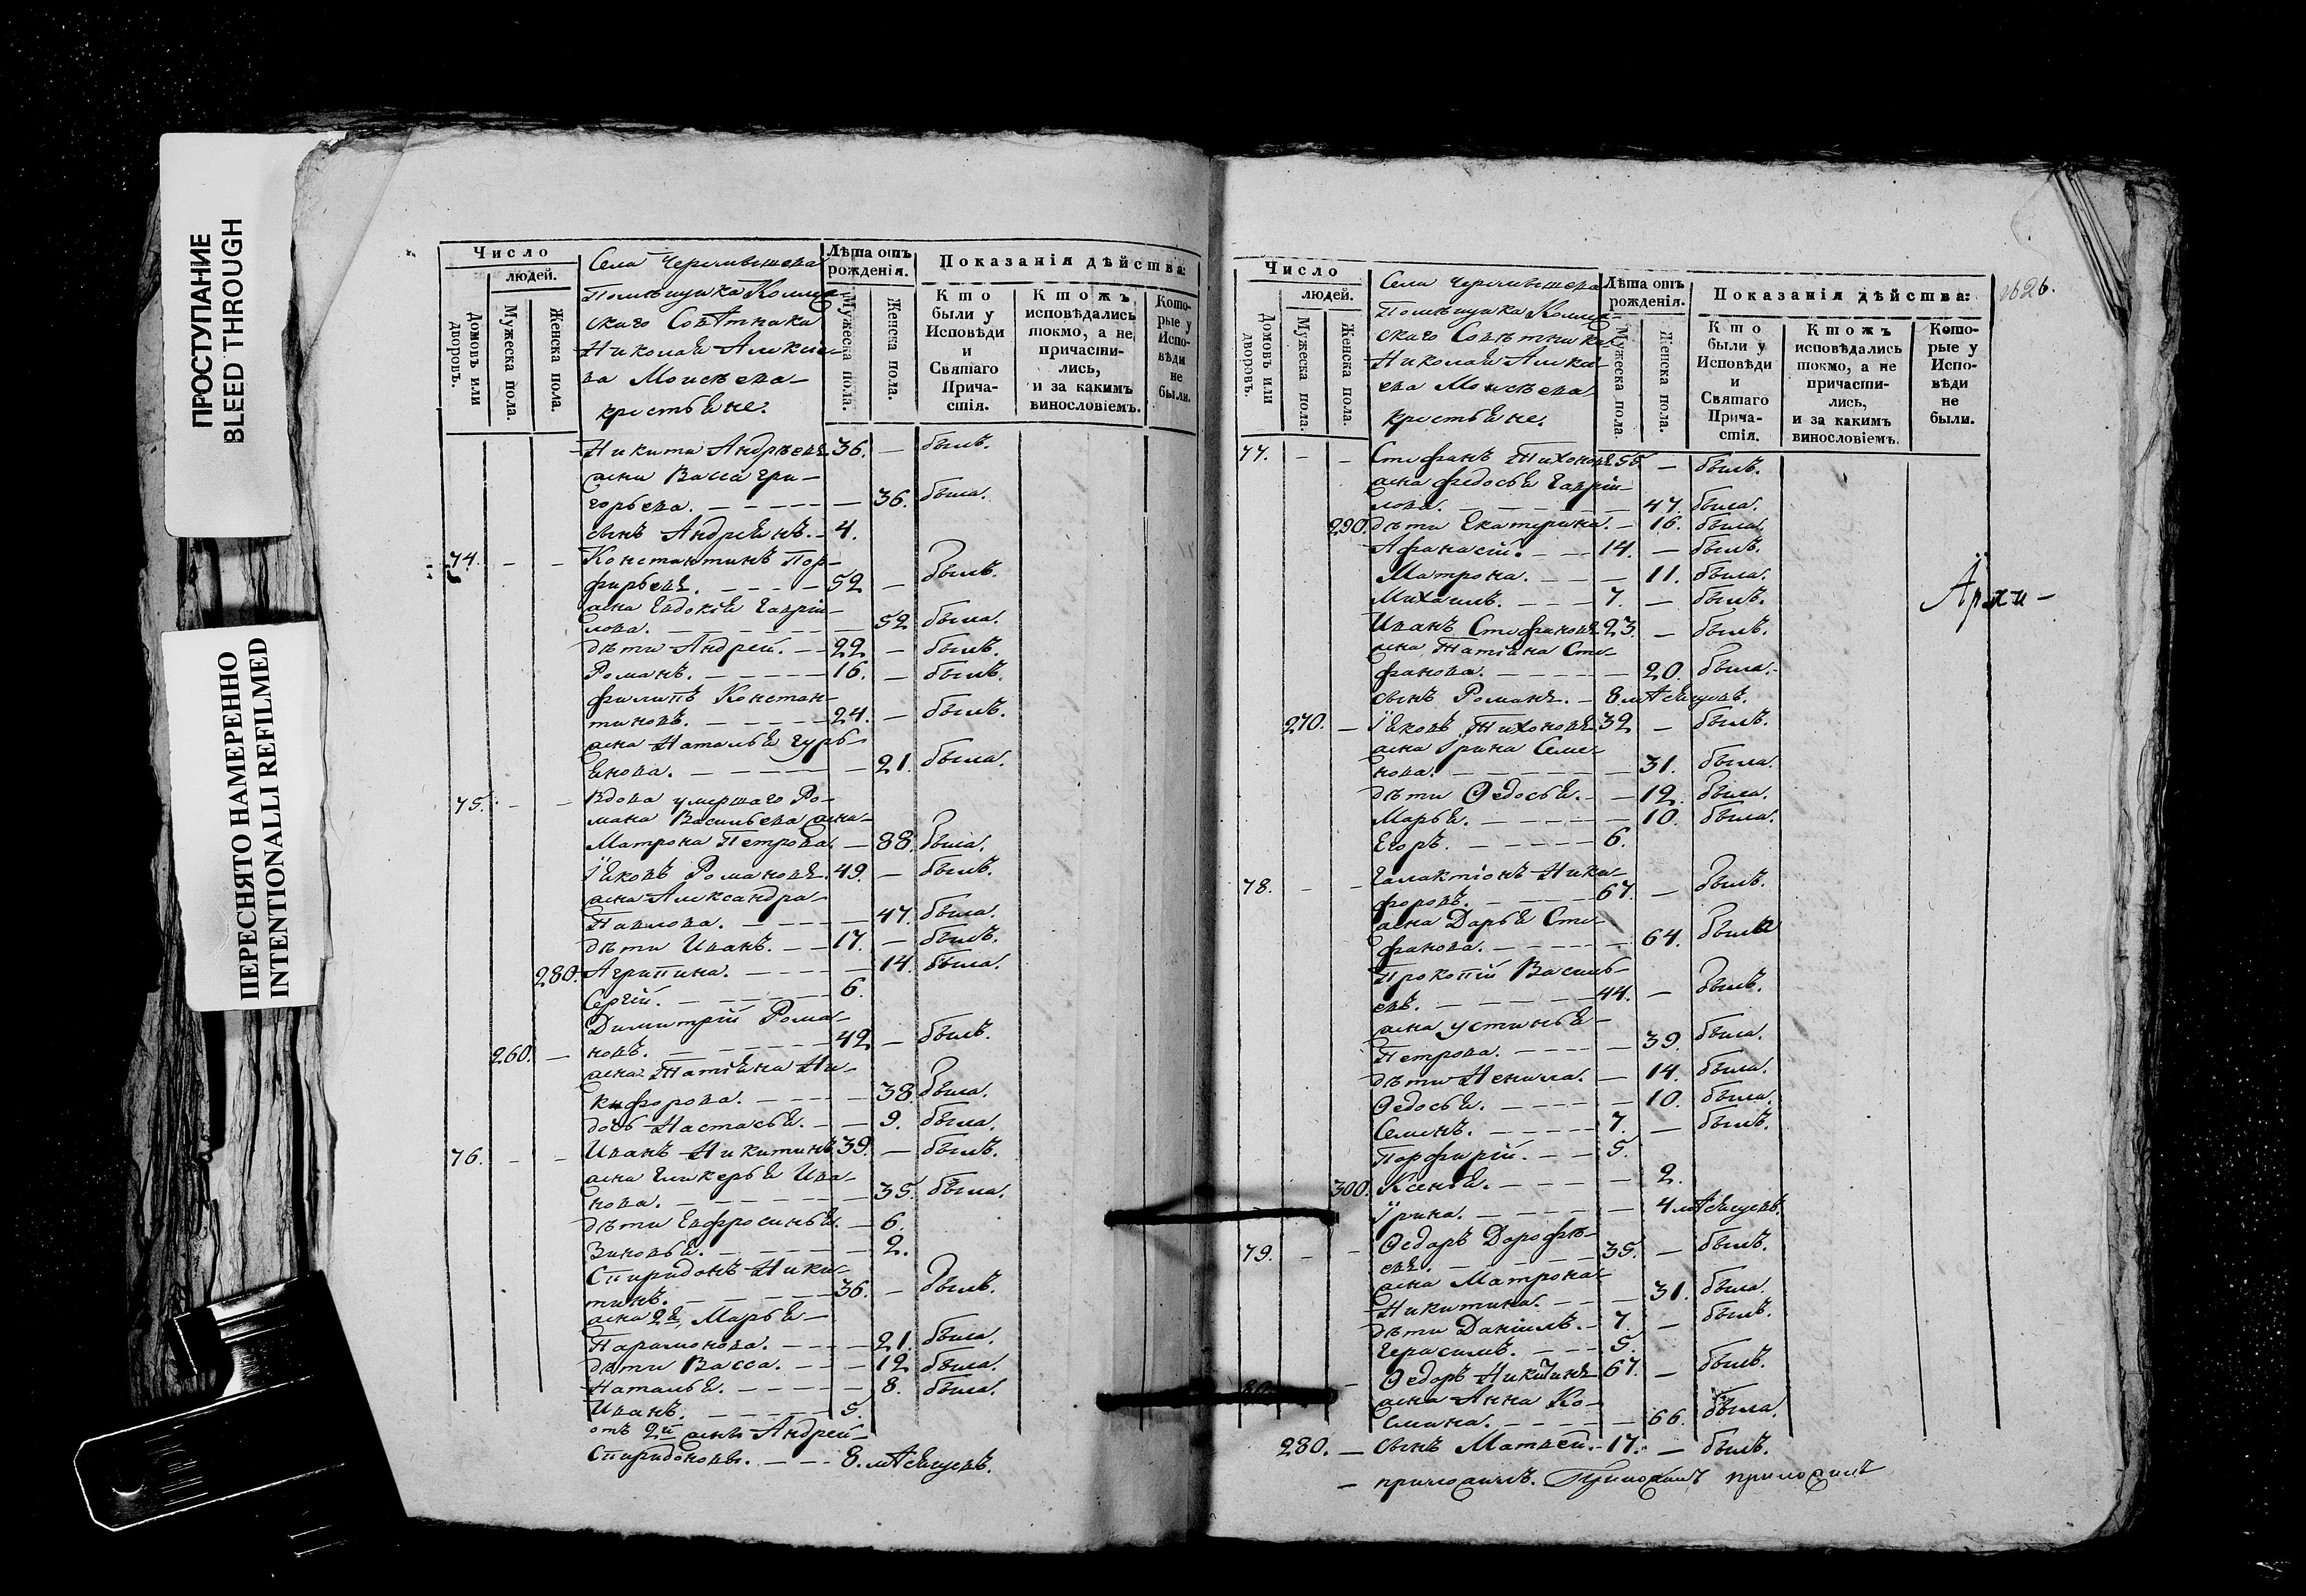 ПРОСТУПАНИЕ
BLEED THROUGH
ПЕРЕСНЯТО НАМЕРЕННО
INTENTIONALLI REFILMED
Число
людей.
Домовъ или дворовъ.
Мужеска пола.
Женска пола.
Села
Помѣщика
скаго Совѣтника
Николая Алексѣе-
ва Моисеева
крестьяне.
Лѣта отъ рожденія.
Мужеска пола.
Женска пола.
Показанія дѣйства:
Кто были у Исповѣди и Святаго Прича-стія.
Ктожъ исповѣдались токмо, а не причасти-лись, и за какимъ винословіемъ.
Кото-рые у Испо-вѣди не были.
Никита Андреевъ 36. — былъ.
жена Васса Гри-
горьева. — 36. была.
сынъ Андреянъ. 4.
74. — — Константинъ Пор-
фирьевъ. 52 — былъ.
жена Евдокія Гаврі-
лова. — 52 была.
дѣти Андрей. 22 — былъ.
Романъ. 16. — былъ.
Филипъ Констан-
тиновъ. 24. — былъ.
жена Наталья Гурь-
янова. — 21. была.
75. — — Вдова умершаго Ро-
мана Васильева жена
Матрона Петрова. — 88. была.
Яковъ Романовъ. 49. — былъ.
жена Александра
Павлова. — 47. была.
дѣти Иванъ. 17. — былъ.
280. Агрипина. — 14. была.
Сергій. 6.
Димитрій Рома-
260. — новъ. 42 — былъ.
жена Татіяна Ни-
кифорова. — 38. была.
дочь Настасья. — 9. была.
76. — — Иванъ Никитинъ 39. — былъ.
жена Гликерья Ива-
нова. — 35. была.
дѣти Евфросинья. — 6.
Зиновья. — 2.
Спиридонъ Ники-
тинъ. 36. — былъ.
жена 2я Марья
Парамонова. — 21. была.
дѣти Васса. — 12 была.
Наталья. — 8. была.
Иванъ. 5.
отъ 2й жены Андрей
Спиридоновъ. — 8. мѣсяцевъ.
Число
людей.
Домовъ или дворовъ.
Мужеска пола.
Женска пола.
Села
Помѣщика
скаго Совѣтника
Николая Алексѣ-
ева Моисеева
крестьяне.
Лѣта отъ рожденія.
Мужеска пола.
Женска пола.
Показанія дѣйства:
Кто были у Исповѣди и Святаго Прича-стія.
Ктожъ исповѣдались токмо, а не причасти-лись, и за какимъ винословіемъ.
Кото-рые у Испо-вѣди не были.
77. — — Стефанъ Тихоновъ — былъ.
жена Федосья Гавріи-
лова. — 47. была.
290. дѣти Екатерина. — 16. была.
Афанасій. 14. — былъ.
Матрона. — 11. была.
Михаилъ. 7. — былъ.
Иванъ Стефановъ 23. — былъ.
жена Татіяна Сте-
фанова. — 20. была.
сынъ Романъ. 8 мѣсяцовъ.
270. — Яковъ Тихоновъ 32 — былъ.
жена Ірина Семе-
нова. — 31. была.
дѣти Ѳедосья. — 12. была.
Марья. — 10. была.
Егоръ. 6.
78. — — Галактіонъ Ники-
форовъ. 67. — былъ.
жена Дарья Сте-
фанова. — 64. была
Прокопій Василь-
евъ. 44. — былъ.
жена Устинья
Петрова. — 39. была.
дѣти Ненила. — 14. была.
Ѳедосья. — 10. была.
Семенъ. 7. — былъ.
Порфирій. 5.
300. Ксенья. — 2.
Ірина. — 4 мѣсяцевъ.
79. — — Ѳедоръ Дорофѣ-
евъ. 35. — былъ.
жена Матрона
Никитина. — 31. была.
дѣти Даніилъ. 7. — былъ.
Герасимъ. 5.
80. — Ѳедоръ Никитинъ 67. — былъ.
жена Анна Ко-
смина. — 66. была.
280. — сынъ Матвей. 17. — былъ.
Архи-